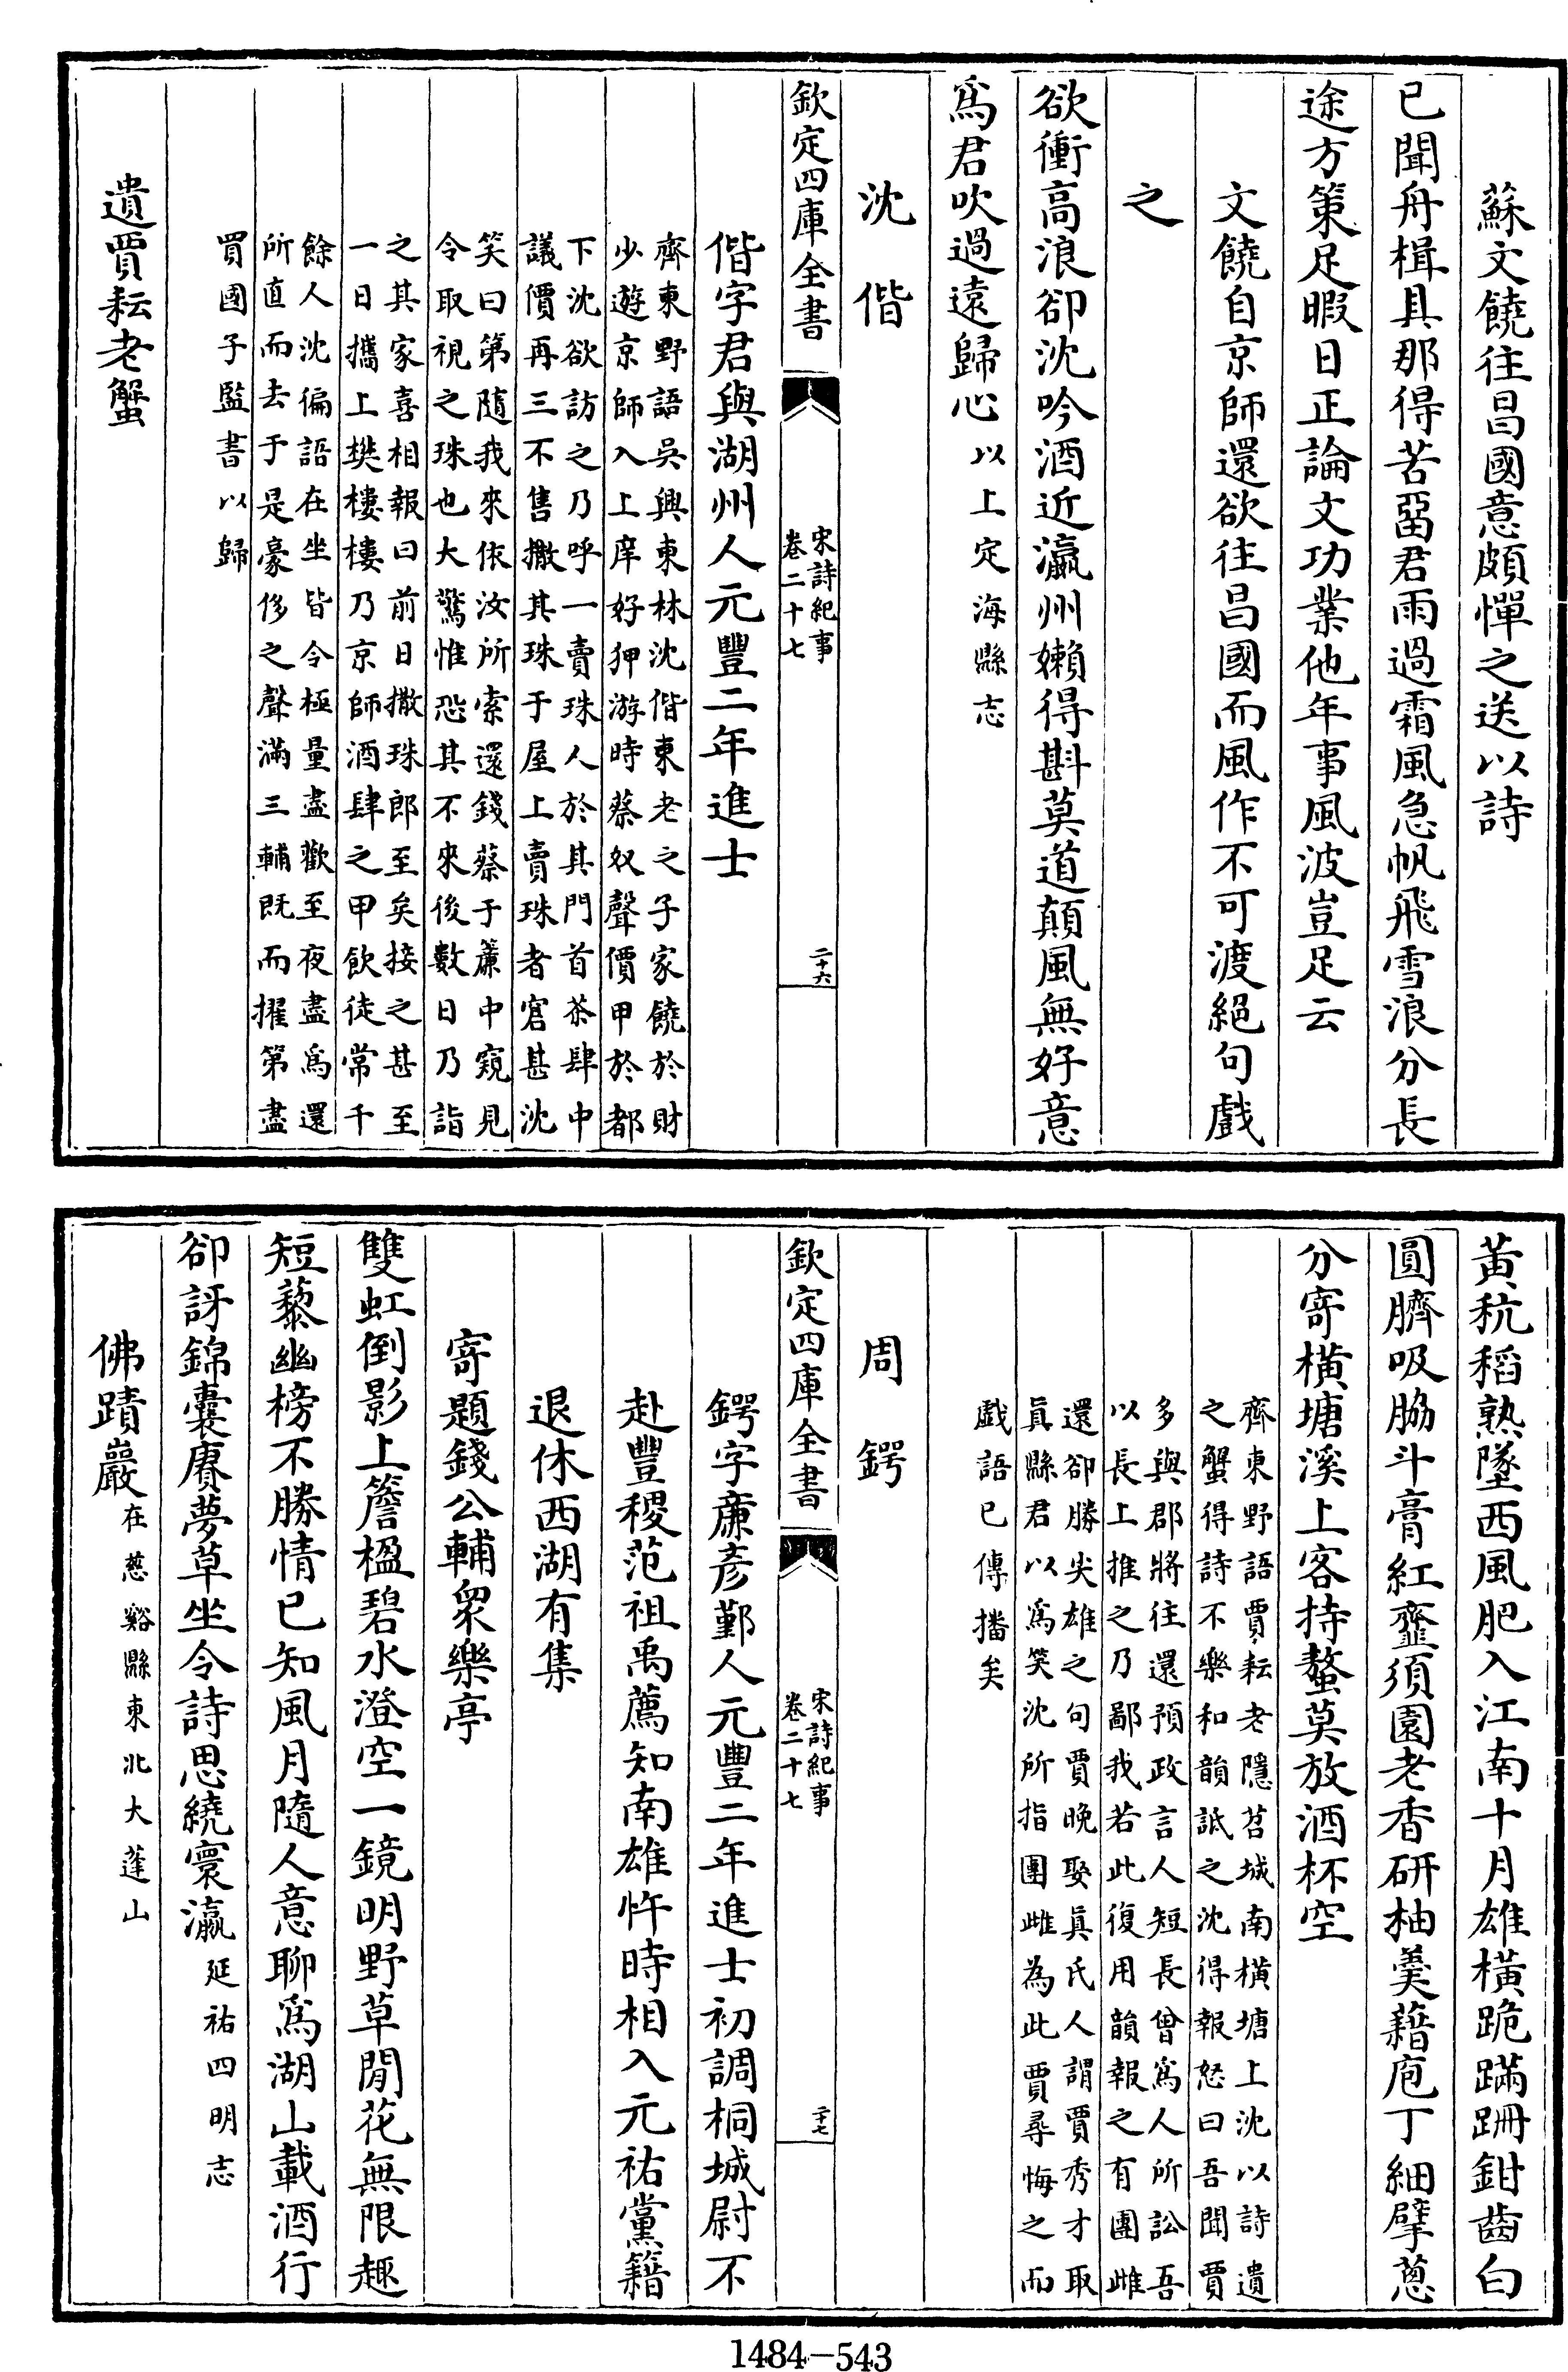 蘇文饒往昌國意頗憚之送以詩
已聞舟楫具那得苦留君雨過霜風急帆飛雪浪分長
途方策足暇日正論文功業他年事風波豈足云
文饒自京師還欲往昌國而風作不可渡絕句戲
之
欲衝高浪卻沈吟酒近瀛州嬾得斟莫道顛風無好意
爲君吹過遠歸心以上定海縣志
沈偕
欽定四庫全書
宋詩紀事
卷二十七
二十六
偕字君與湖州人元豐二年進士
齊東野語吳興東林沈偕東老之子家饒於財
少遊京師入上庠好狎游時蔡奴聲價甲於都
下沈欲訪之乃呼一賣珠人於其門首茶肆中
議價再三不售撒其珠于屋上賣珠者窘甚沈
笑曰第隨我來依汝所索還錢蔡于簾中窺見
令取視之珠也大驚惟恐其不來後數日乃詣
之其家喜相報曰前日撒珠郎至矣接之甚至
一日攜上樊樓樓乃京師酒肆之甲飲徒常千
餘人沈徧語在坐皆令極量盡歡至夜盡爲還
所直而去于是豪侈之聲滿三輔既而擢第盡
買國子監書以歸
遺賈耘老蟹
黃秔稻熟墜西風肥入江南十月雄橫跪蹣跚鉗齒白
圓臍吸脇斗膏紅虀須園老香研柚羹藉庖丁細擘蔥
分寄橫塘溪上客持螯莫放酒杯空
齊東野語賈耘老隱苕城南橫塘上沈以詩遺
之蟹得詩不樂和韻詆之沈得報怒曰吾聞賈
多與郡將往還預政言人短長曾爲人所訟吾
以長上推之乃鄙我若此復用韻報之有團雌
還卻勝尖雄之句賈晚娶眞氏人謂賈秀才取
眞縣君以爲笑沈所指團雌為此賈尋悔之而
戲語已傳播矣
周鍔
欽定四庫全書
宋詩紀事
卷二十七
二十七
鍔字廉彥鄞人元豐二年進士初調桐城尉不
赴豐稷范祖禹薦知南雄忤時相入元祐黨籍
退休西湖有集
寄題錢公輔衆樂亭
雙虹倒影上簷楹碧水澄空一鏡明野草閒花無限趣
短藜幽榜不勝情已知風月隨人意聊爲湖山載酒行
卻訝錦囊賡夢草坐令詩思繞寰瀛延祐四明志
佛蹟巖在慈谿縣東北大蓬山
1484-543